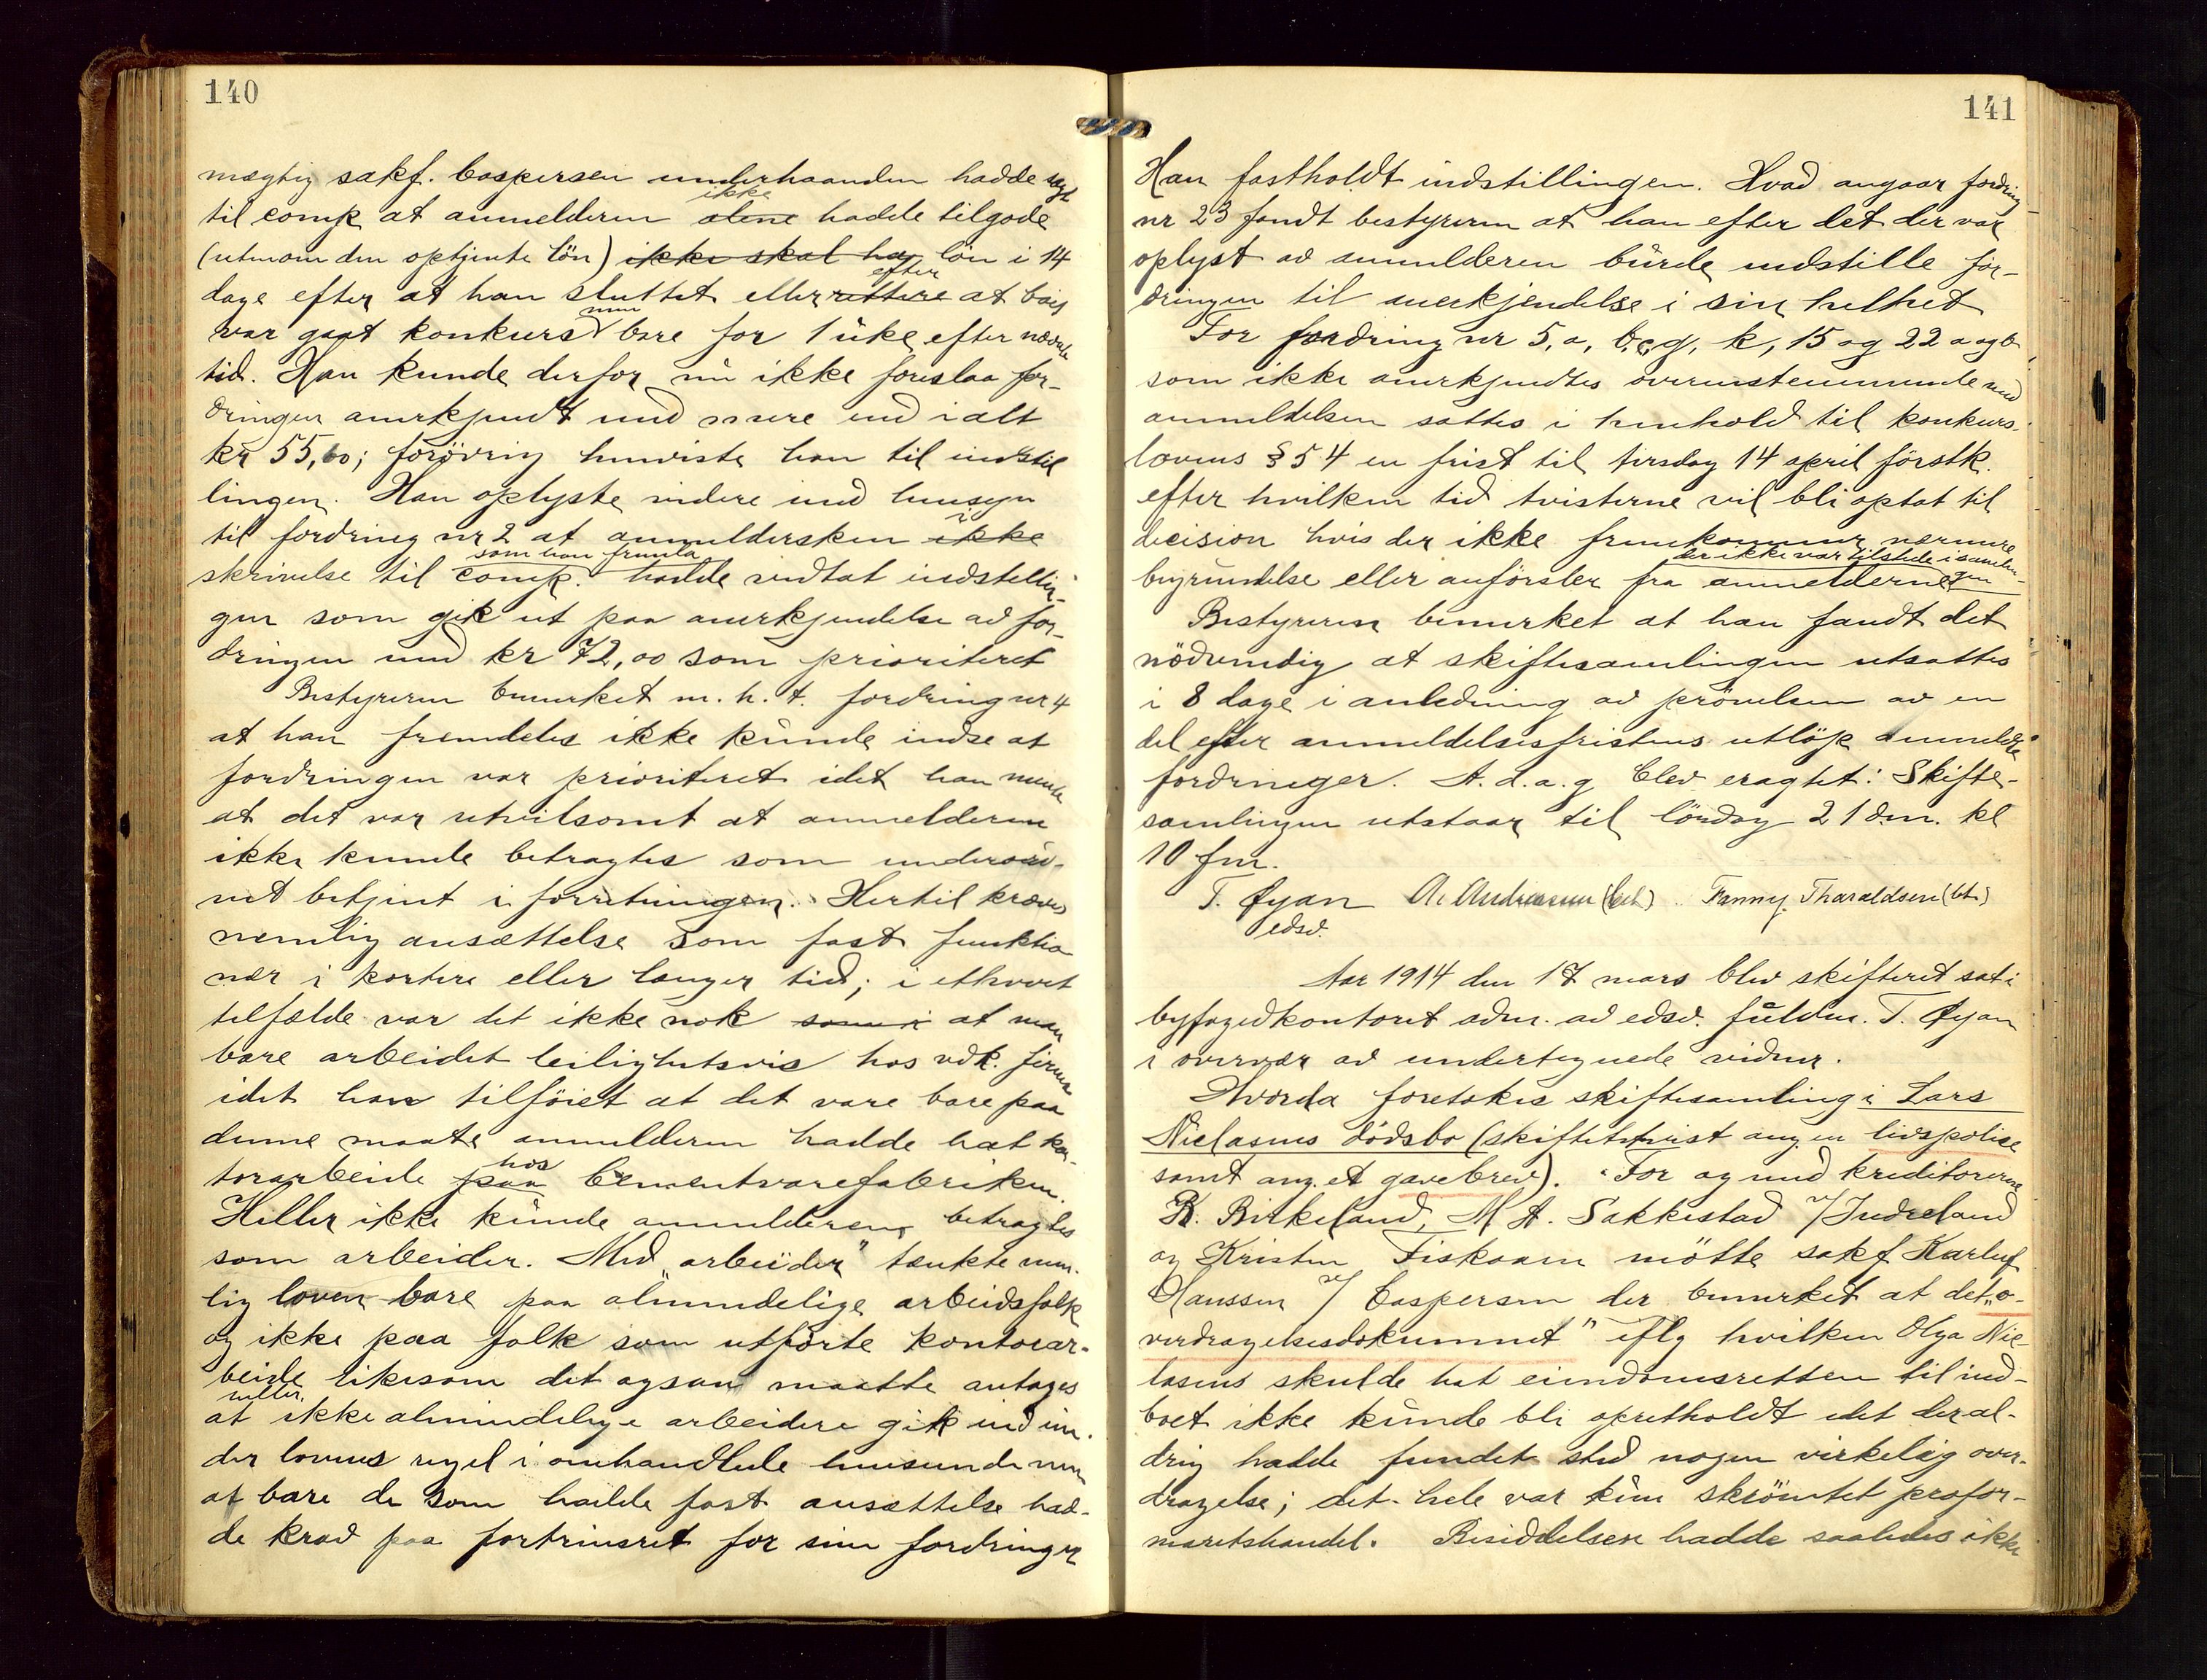 140
mægtig sakf. Caspersen underhaanden hadde sagt
til comp at anmelderen alene ikke hadde tilgode
(utenom den optjente lön) ikke skal ha lön i 14
dage efter at han sluttet eller rettere efter at boig
var gaat konkurs men bare for 1 uke efter nævnte
tid. Han kunde derfor nu ikke foreslaa for-
dringen anerkjendt med mere end ialt
kr 55,60; forøvrig henviste han til indstil
lingen. Han oplyste videre med hensyn
til fordring nr 2 at anmeldersken ikke i
skrivelse til comp. som han fremla hadde vedtat indstillin-
gen som gik ut paa anerkjendelse av for-
dringen med kr 72,00 som prioriteret
Bestyreren bemerket m. h. t. fordring nr 4
at han fremdeles ikke kunde indse at
fordringen var prioriteret idet han mente
at det var utvilsomt at anmelderen
ikke kunde betragtes som underord-
net betjent i forretningen. Hertil kræves
nemlig ansættelse som fast funktio
nær i kortere eller længer tid; i ethvert
tilfælde var det ikke nok som i at man
bare arbeidet leilighetsvis hos vdk. firma
idet han tilföiet at det vare bare paa
denne maate anmelderen hadde hat kon-
torarbeide paa hos Cementvarefabriken.
Heller ikke kunde anmelderen betragtes
som arbeider. Med "arbeider" tænkte nem-
lig loven bare paa almindelige arbeidsfolk
og ikke paa folk som utförte kontorar-
beide likesom det ogsaa maatte antages
at ikke heller almindelige arbeidere gik ind un-
der lovens regel i omhandlede henseende men
at bare de som hadde fast ansættelse had-
de krav paa fortrinsret for sine fordringer
141
Han fastholdt indstillingen. Hvad angaar fordring
nr 23 fandt bestyreren at han efter det der var
oplyst av anmelderen burde indstille for-
dringen til anerkjendelse i sin helhet
For fordring nr 5, a, b, c, g, k, 15 og 22 a og b
som ikke anerkjendtes overensstemmende med
anmeldelsen sattes i henhold til konkurs-
lovens § 54 en frist til tirsdag 14 april førstk.
efter hvilken tid tvisterne vil bli optat til
decision hvis der ikke fremkommer nærmere
begrundelse eller anförsler fra anmelderne der ikke var tilstede i samlingen
Bestyreren bemerket at han fandt det
nödvendig at skiftesamlingen utsattes
i 8 dage i anledning av prövelsen av en
del efter anmeldelsesfristens utlöp anmeldte
fordringer. A. d. a. g blev eragtet: Skifte-
samlingen utstaar til lördag 21 d.m. kl
10 fm.
T. Øyan A. Andreassen (bet) Fanny Tharaldsen (bt.)
edsv.
Aar 1914 den 17 mars blev skifteret sat i
byfogedkontoret adm. av edsv. fuldm. T. Øyan
i overvær av undertegnede vidner.
Hvorda foretokes skiftesamling i Lars
Niclasens dödsbo (skiftetvist ang. en livspolise
samt ang. et gavebrev). For og med kreditorerne
R. Birkeland, M A. Sakkestad v/ Indreland
og Kristen Fiskaaen mötte sakf Karluf
Hanssen v/ Caspersen der bemerket at det "o-
verdragelsesdokument" iflg hvilken Olga Nic-
lasens skulde hat eiendomsretten til ind-
boet ikke kunde bli opretholdt idet der al-
drig hadde fundet sted nogen virkelig over-
dragelse; det hele var kun skrömtet profor-
maretshandel. Besiddelsen hadde saaledes ikke